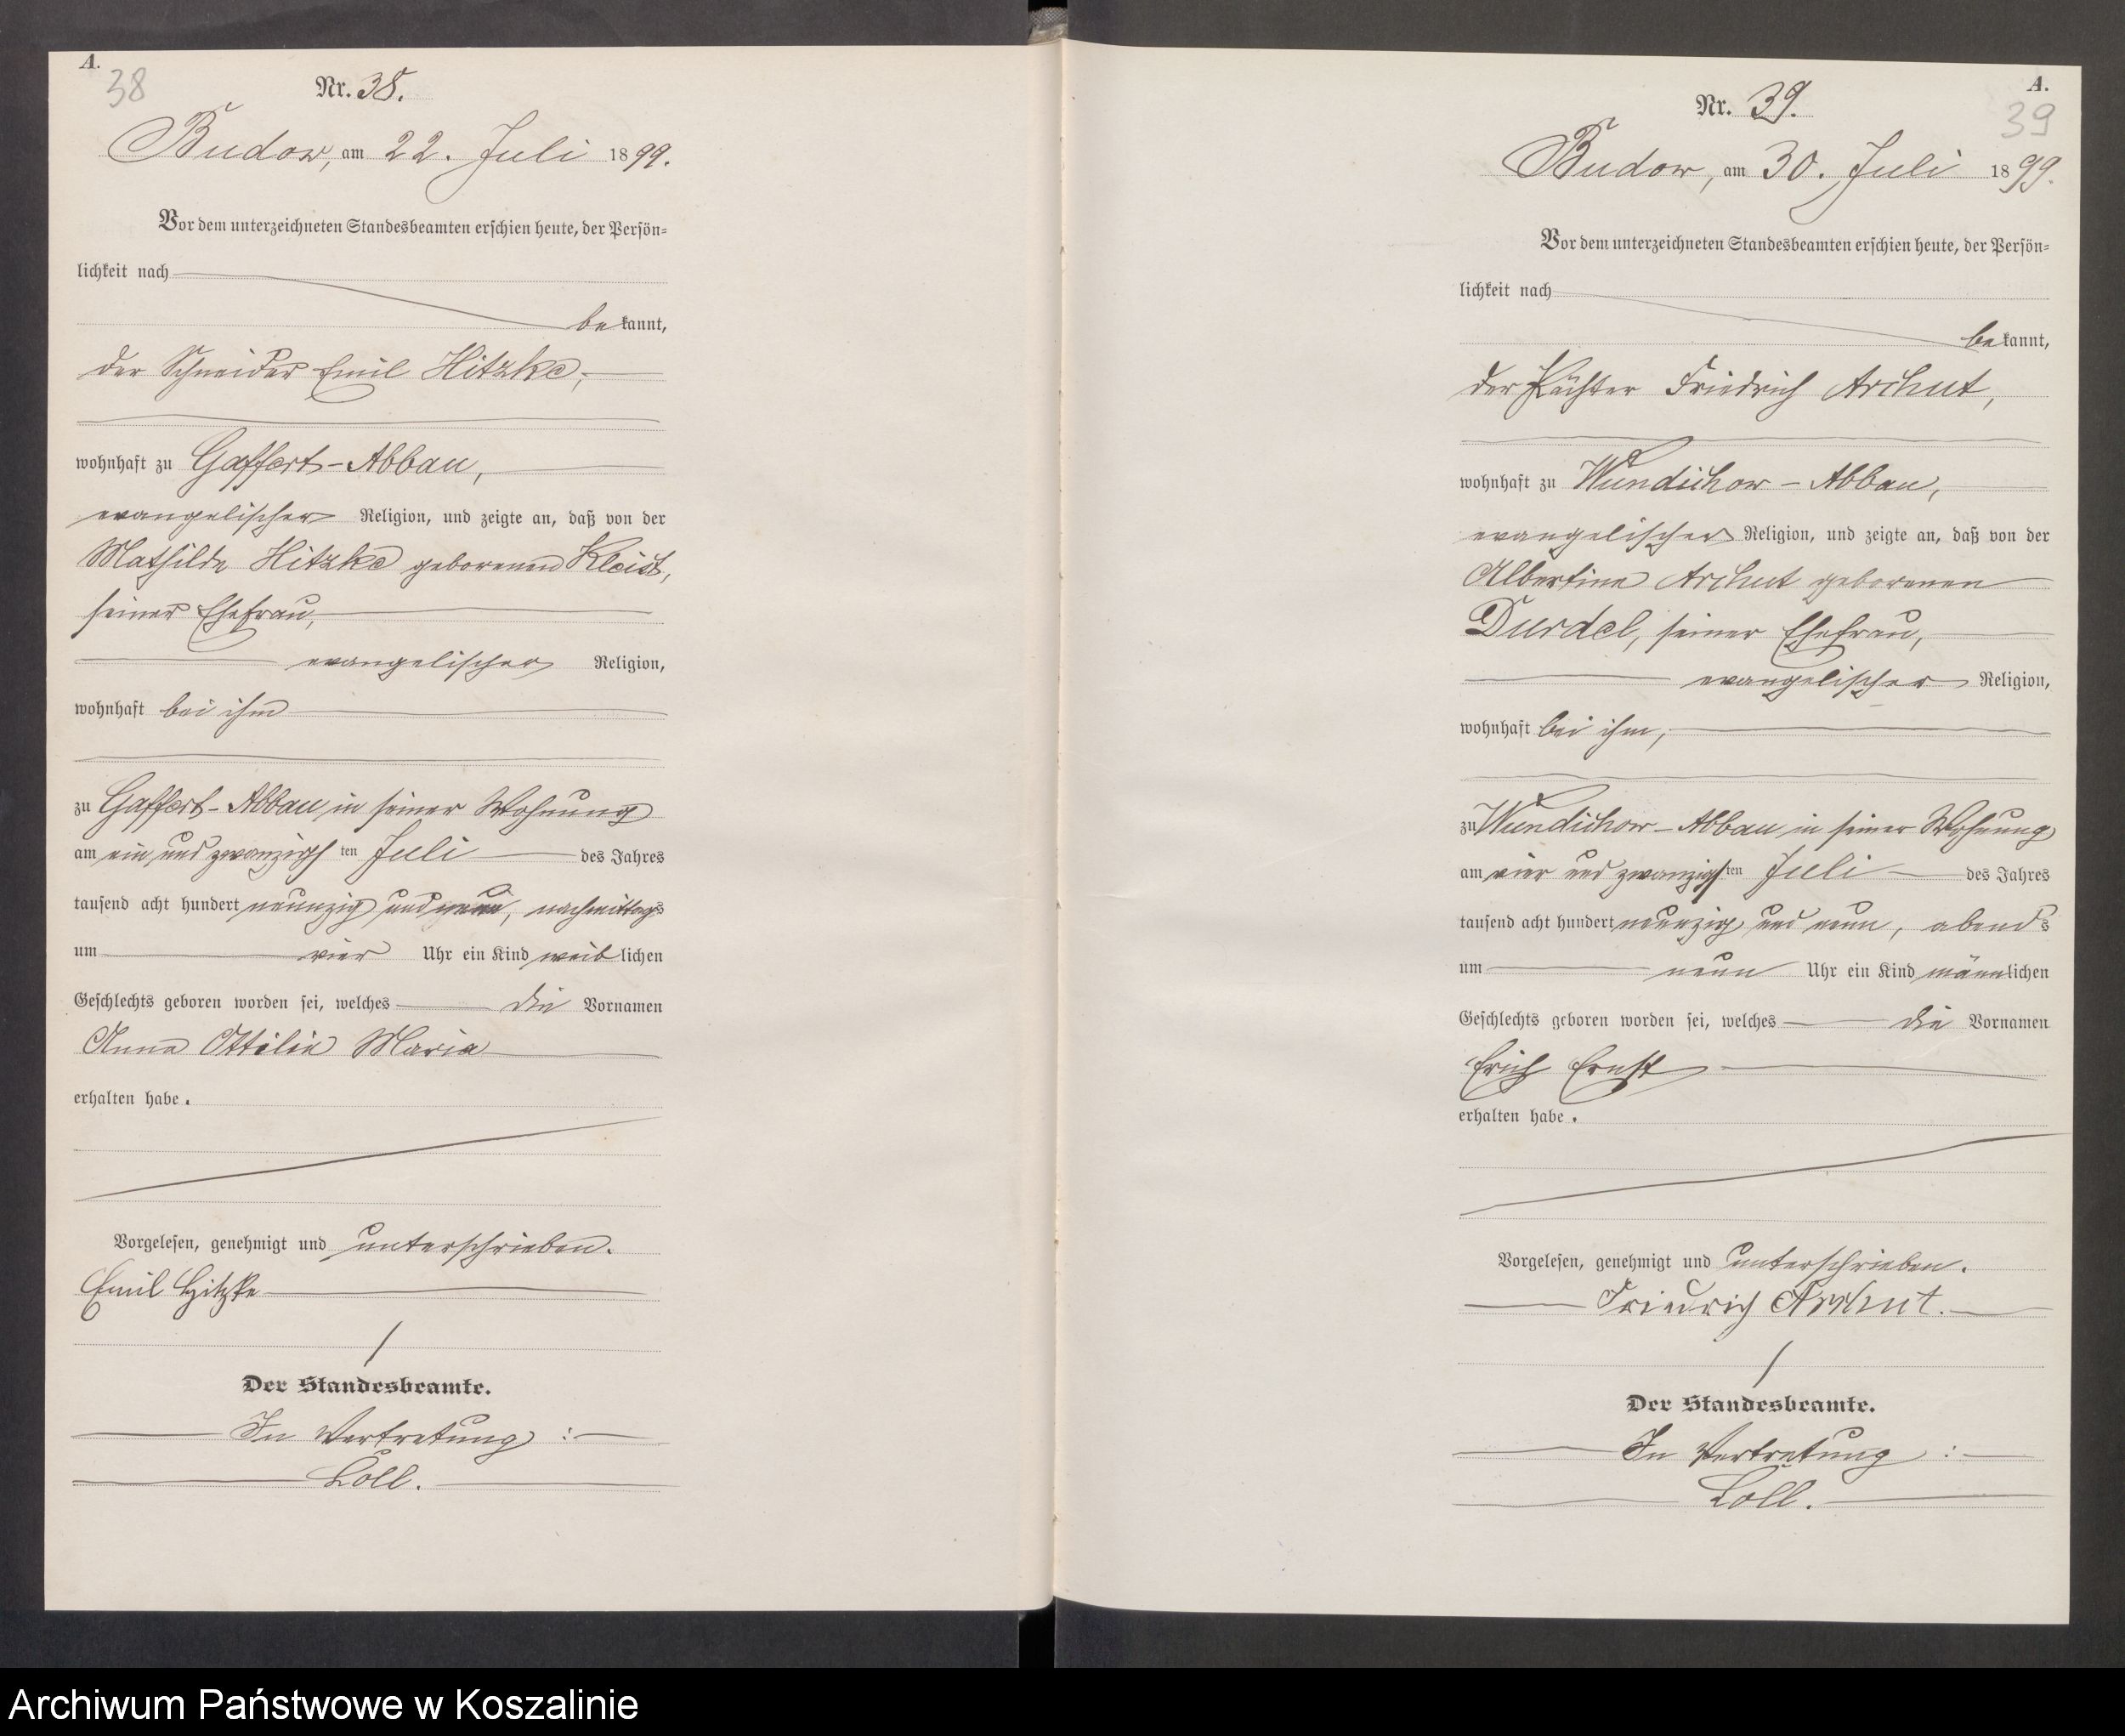 A.
38
Nr. 38.
Budow, am 22. Juli 1899.
Vor dem unterzeichneten Standesbeamten erschien heute, der Persön-
lichkeit nach
bekannt,
der Schneider Emil Hitzke,
wohnhaft zu Gaffert-Abbau,
evangelischer Religion, und zeigte an, daß von der
Mathilde Hitzke geborenen Kleist,
seiner Ehefrau,
evangelischer Religion,
wohnhaft bei ihm
zu Gaffert-Abbau in seiner Wohnung
am ein und zwanzigsten Juli des Jahres
tausend acht hundert neunzig und neun, nachmittags
um vier Uhr ein Kind weiblichen
Geschlechts geboren worden sei, welches die Vornamen
Anna Ottilie Maria
erhalten habe.
Vorgelesen, genehmigt und unterschrieben.
Emil Hitzke
Der Standesbeamte.
In Vertretung:
Loll.
A.
39
Nr. 39.
Budow, am 30. Juli 1899.
Vor dem unterzeichneten Standesbeamten erschien heute, der Persön-
lichkeit nach
bekannt,
der Pächter Friedrich Archut,
wohnhaft zu Wundichow-Abbau,
evangelischer Religion, und zeigte an, daß von der
Albertine Archut geborenen
Durdel, seiner Ehefrau,
evangelischer Religion,
wohnhaft bei ihm,
zu Wundichow-Abbau in seiner Wohnung
am vier und zwanzigsten Juli des Jahres
tausend acht hundert neunzig und neun, abends
um neun Uhr ein Kind männlichen
Geschlechts geboren worden sei, welches die Vornamen
Erich Ernst
erhalten habe.
Vorgelesen, genehmigt und unterschrieben.
Friedrich Archut.
Der Standesbeamte.
In Vertretung:
Loll.
Archiwum Państwowe w Koszalinie